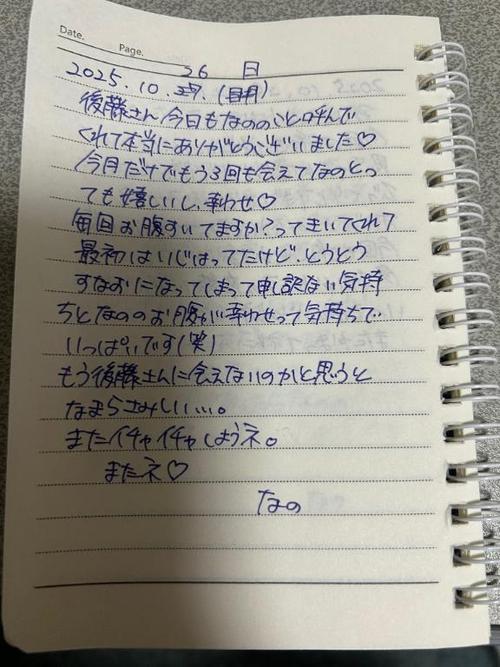 Date.
Page.
26 日
2025.10.27.(月)
後藤さん今日もなののこと呼んで
くれて本当にありがとうございました♡
今月だけでもう3回も会えてなのとっ
ても嬉しいし、幸わせ♡
毎回お腹すいてますか?ってきいてくれて
最初はいじはってたけど、とうとう
すなおになってしまって申し訳ない気持
ちとなののお腹が幸わせって気持ちで
いっぱいです(笑)
もう後藤さんに会えないのかと思うと
なまらさみしい…。
またイチャイチャしようネ。
またネ♡
なの